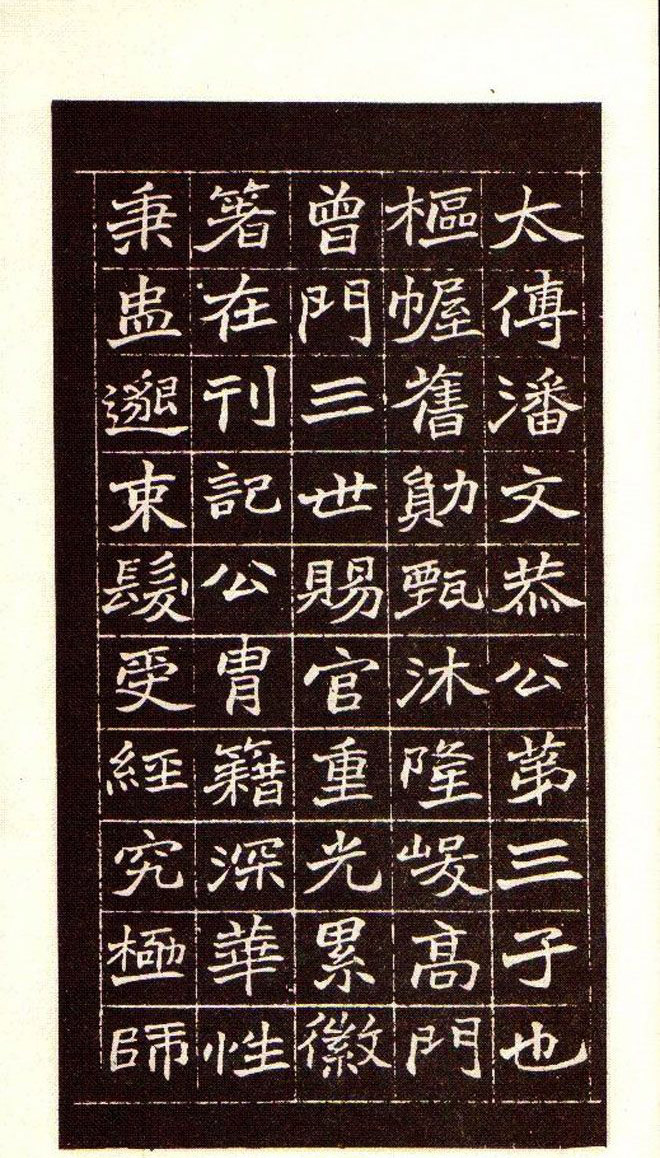 太傅潘文恭公苐三子也
樞幄舊勛甄沐隆峻高門
曾門三世賜官重光累徽
箸在刊記公胄籍深華性
秉盅邈束髮受經究極師